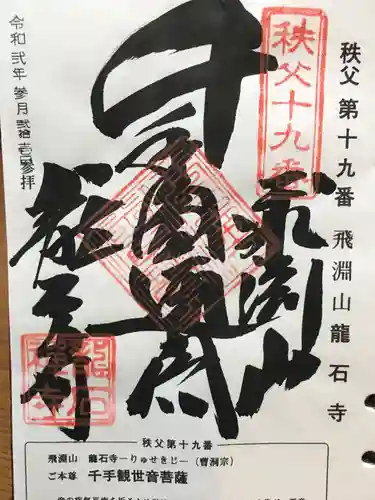 秩父 第十九番 飛淵山 龍石寺
秩父十九番
飛淵山
千手
龍石寺
令和 弐年 参月 弐拾壱日 参拝
龍石寺
秩父第十九番
飛淵山 龍石寺ーりゅせきじー (曹洞宗)
ご本尊 千手観世音菩薩